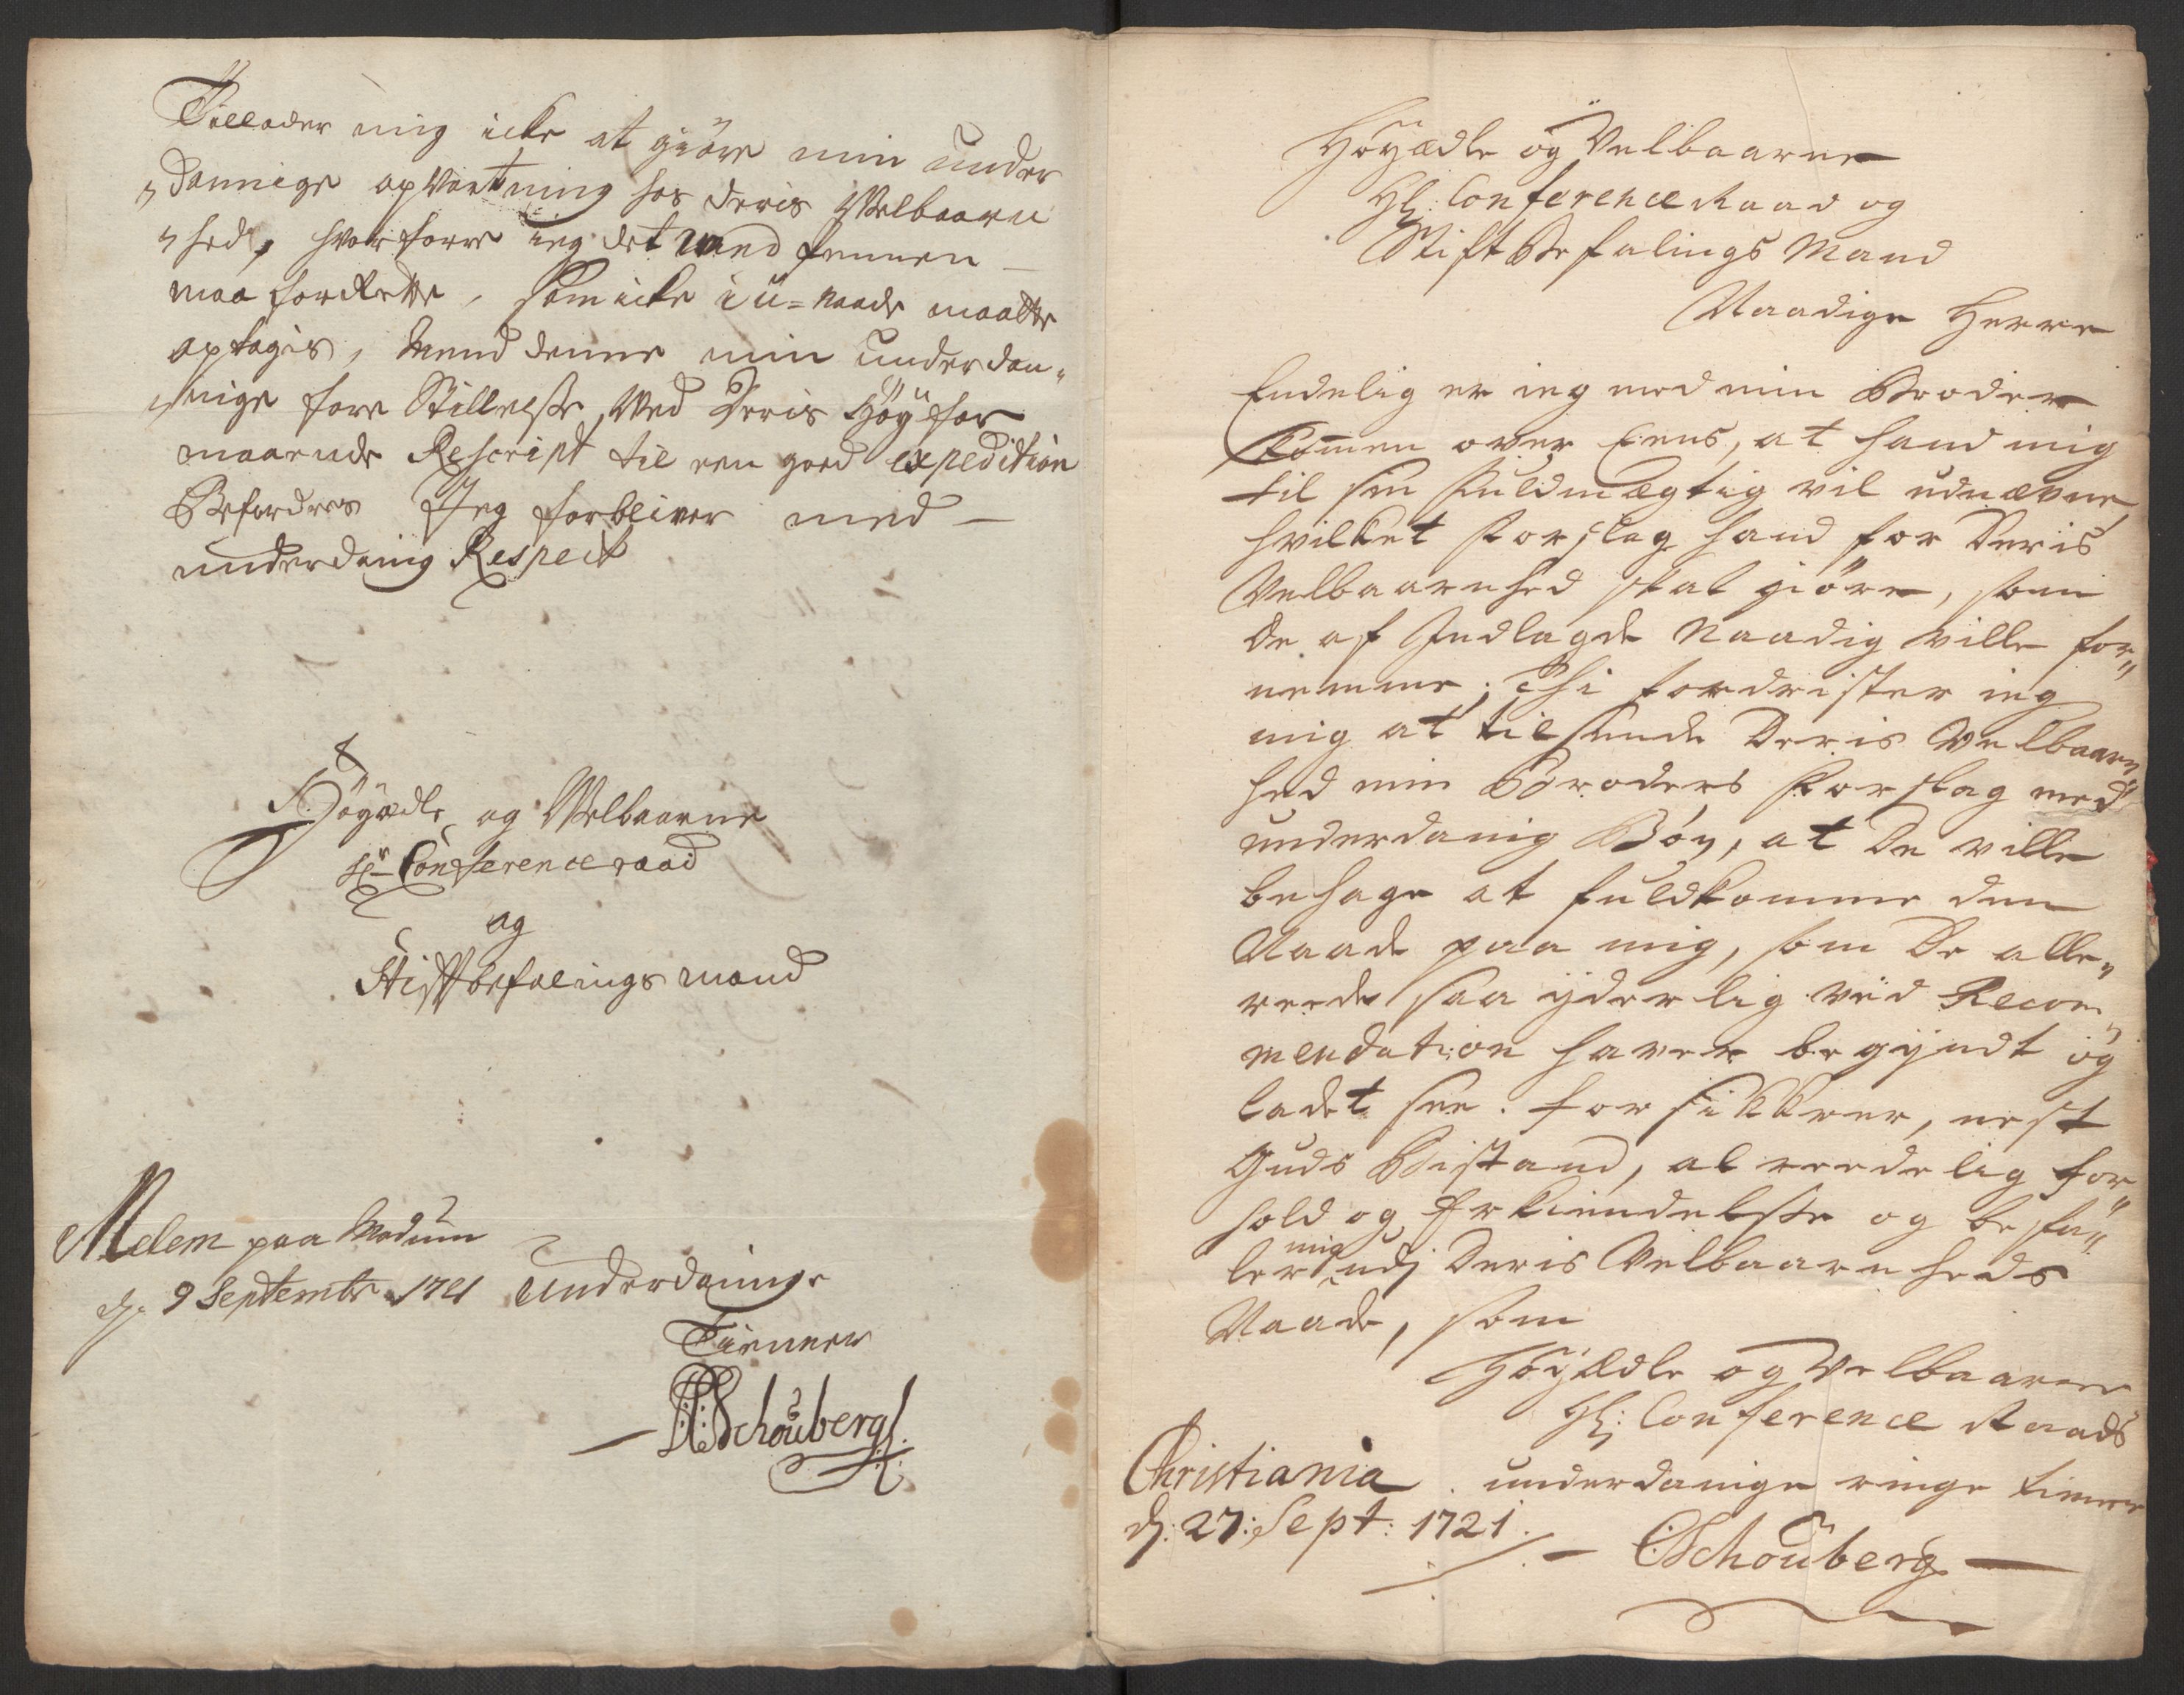 Tillader mig icke at giöre min under
„dannige opVartning hos deris Welbaarn
„hed, hvorforre ieg det med pennen
maa forrette, som icke i u=naade maatte
optagis, Mend denne min underdan„
„nige fore Stillelsse, Wed Deris Höy for
maaende Rescript til een goed expedition
Befordres Jeg forbliver med
underdanig Respect
Höyædle og Welbaarne
Hr Conferenceraad
og
Stiftbefalings mand
Melem paa Modum
d. 9 Septembr 1721 Underdanige
Tienner
Schouberg
Höyædle og Velbaarne
Hr: Conference Raad og
Stift Befalings Mand
Naadige Herre
Endelig er ieg med min Broder
kommen over Eens, at hand mig
til sin Fuldmægtig vil udnævne,
hvilket Forslag hand for Deris
Velbaarenhed skal giöre, som
De af Indlagde Naadig ville for„
nemme; Thi fordrister ieg
mig at tilsende Deris Velbaaren„
hed min Broders Forslag med
underdanig Bön, at De ville
behage at fuldkomme den
Naade paa mig, som De alle„
reede saa ÿderlig ved Recom„
mendation haver begÿndt og
ladet see. forsikkrer, nest
Guds Bistand, al reedelig for„
hold og Erkiendelsse og befa„
ler mig udj Deris Velbaarenheds
Naade, som
Höÿædle og Velbaarne
Hr: Conference Raads
Christiania underdanige ringe tienner
d: 27: Sept: 1721.
Schouberg